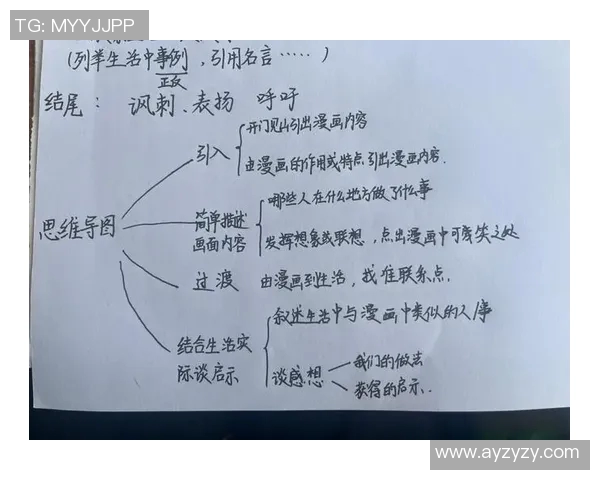 TG: MYYJJPP
(列举生活中事例，引用名言……)
正反
结尾： 讽刺、表扬 呼吁
思维导图
引入
开门见山引出漫画内容
由漫画的作用或特点引出漫画内容.
简单描述
画面内容
哪些人在什么地方做了什么事
发挥想象或联想，点出漫画中可笑之处
过渡 由漫画到生活，找准联系点.
结合生活实
际谈启示
叙述生活中与漫画中类似的人事
谈感想
我们的做法
获得的启示.
www.ayzyzy.com